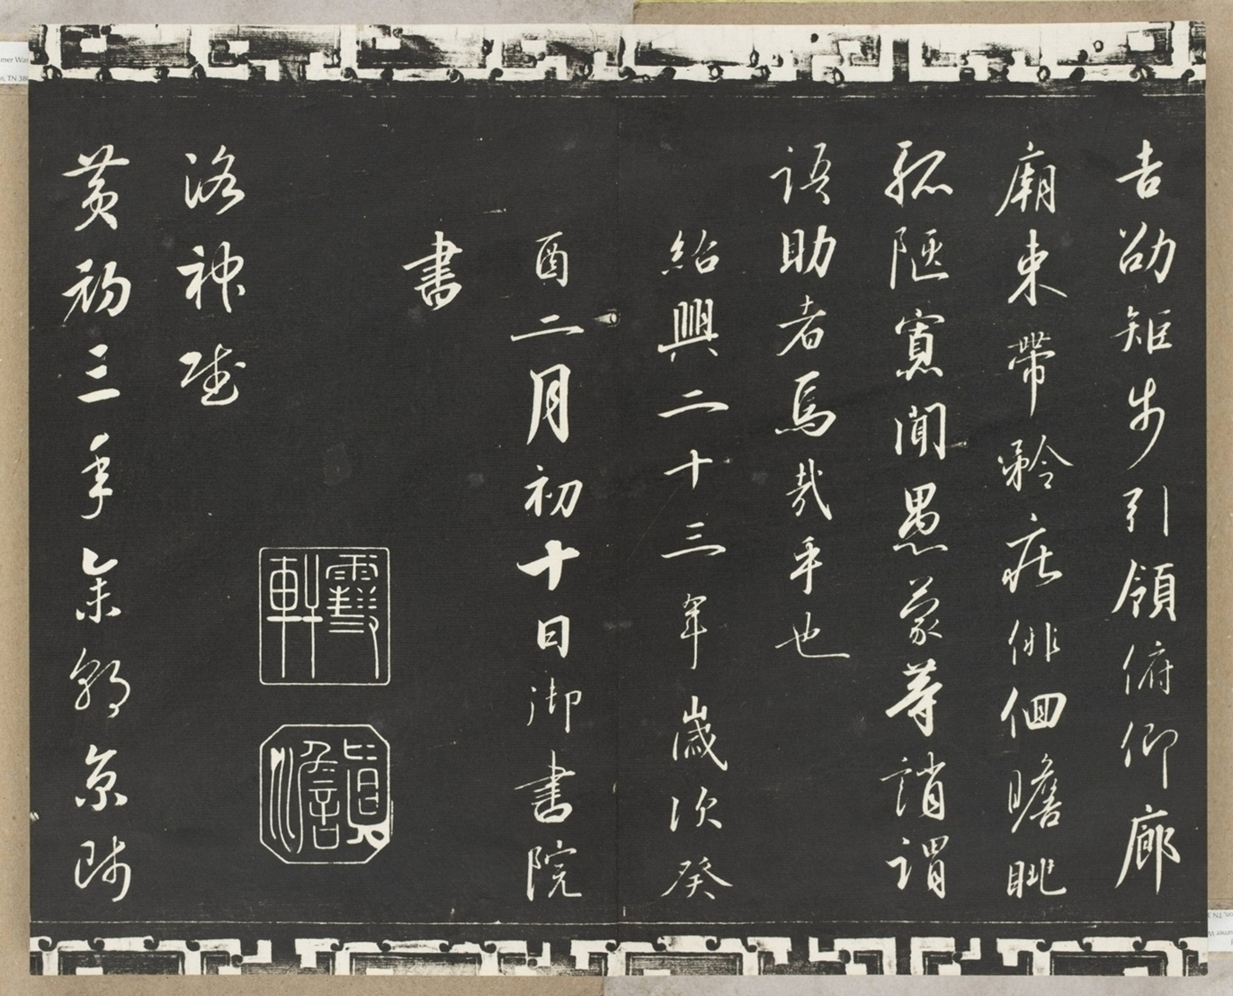 吉劭矩步引領俯仰廊
廟束帶矜莊徘徊瞻眺
孤陋寡聞愚蒙等誚謂
語助者焉哉乎也
紹興二十三年歲次癸
酉二月初十日御書院
書
洛神賦
黃初三年余朝京師